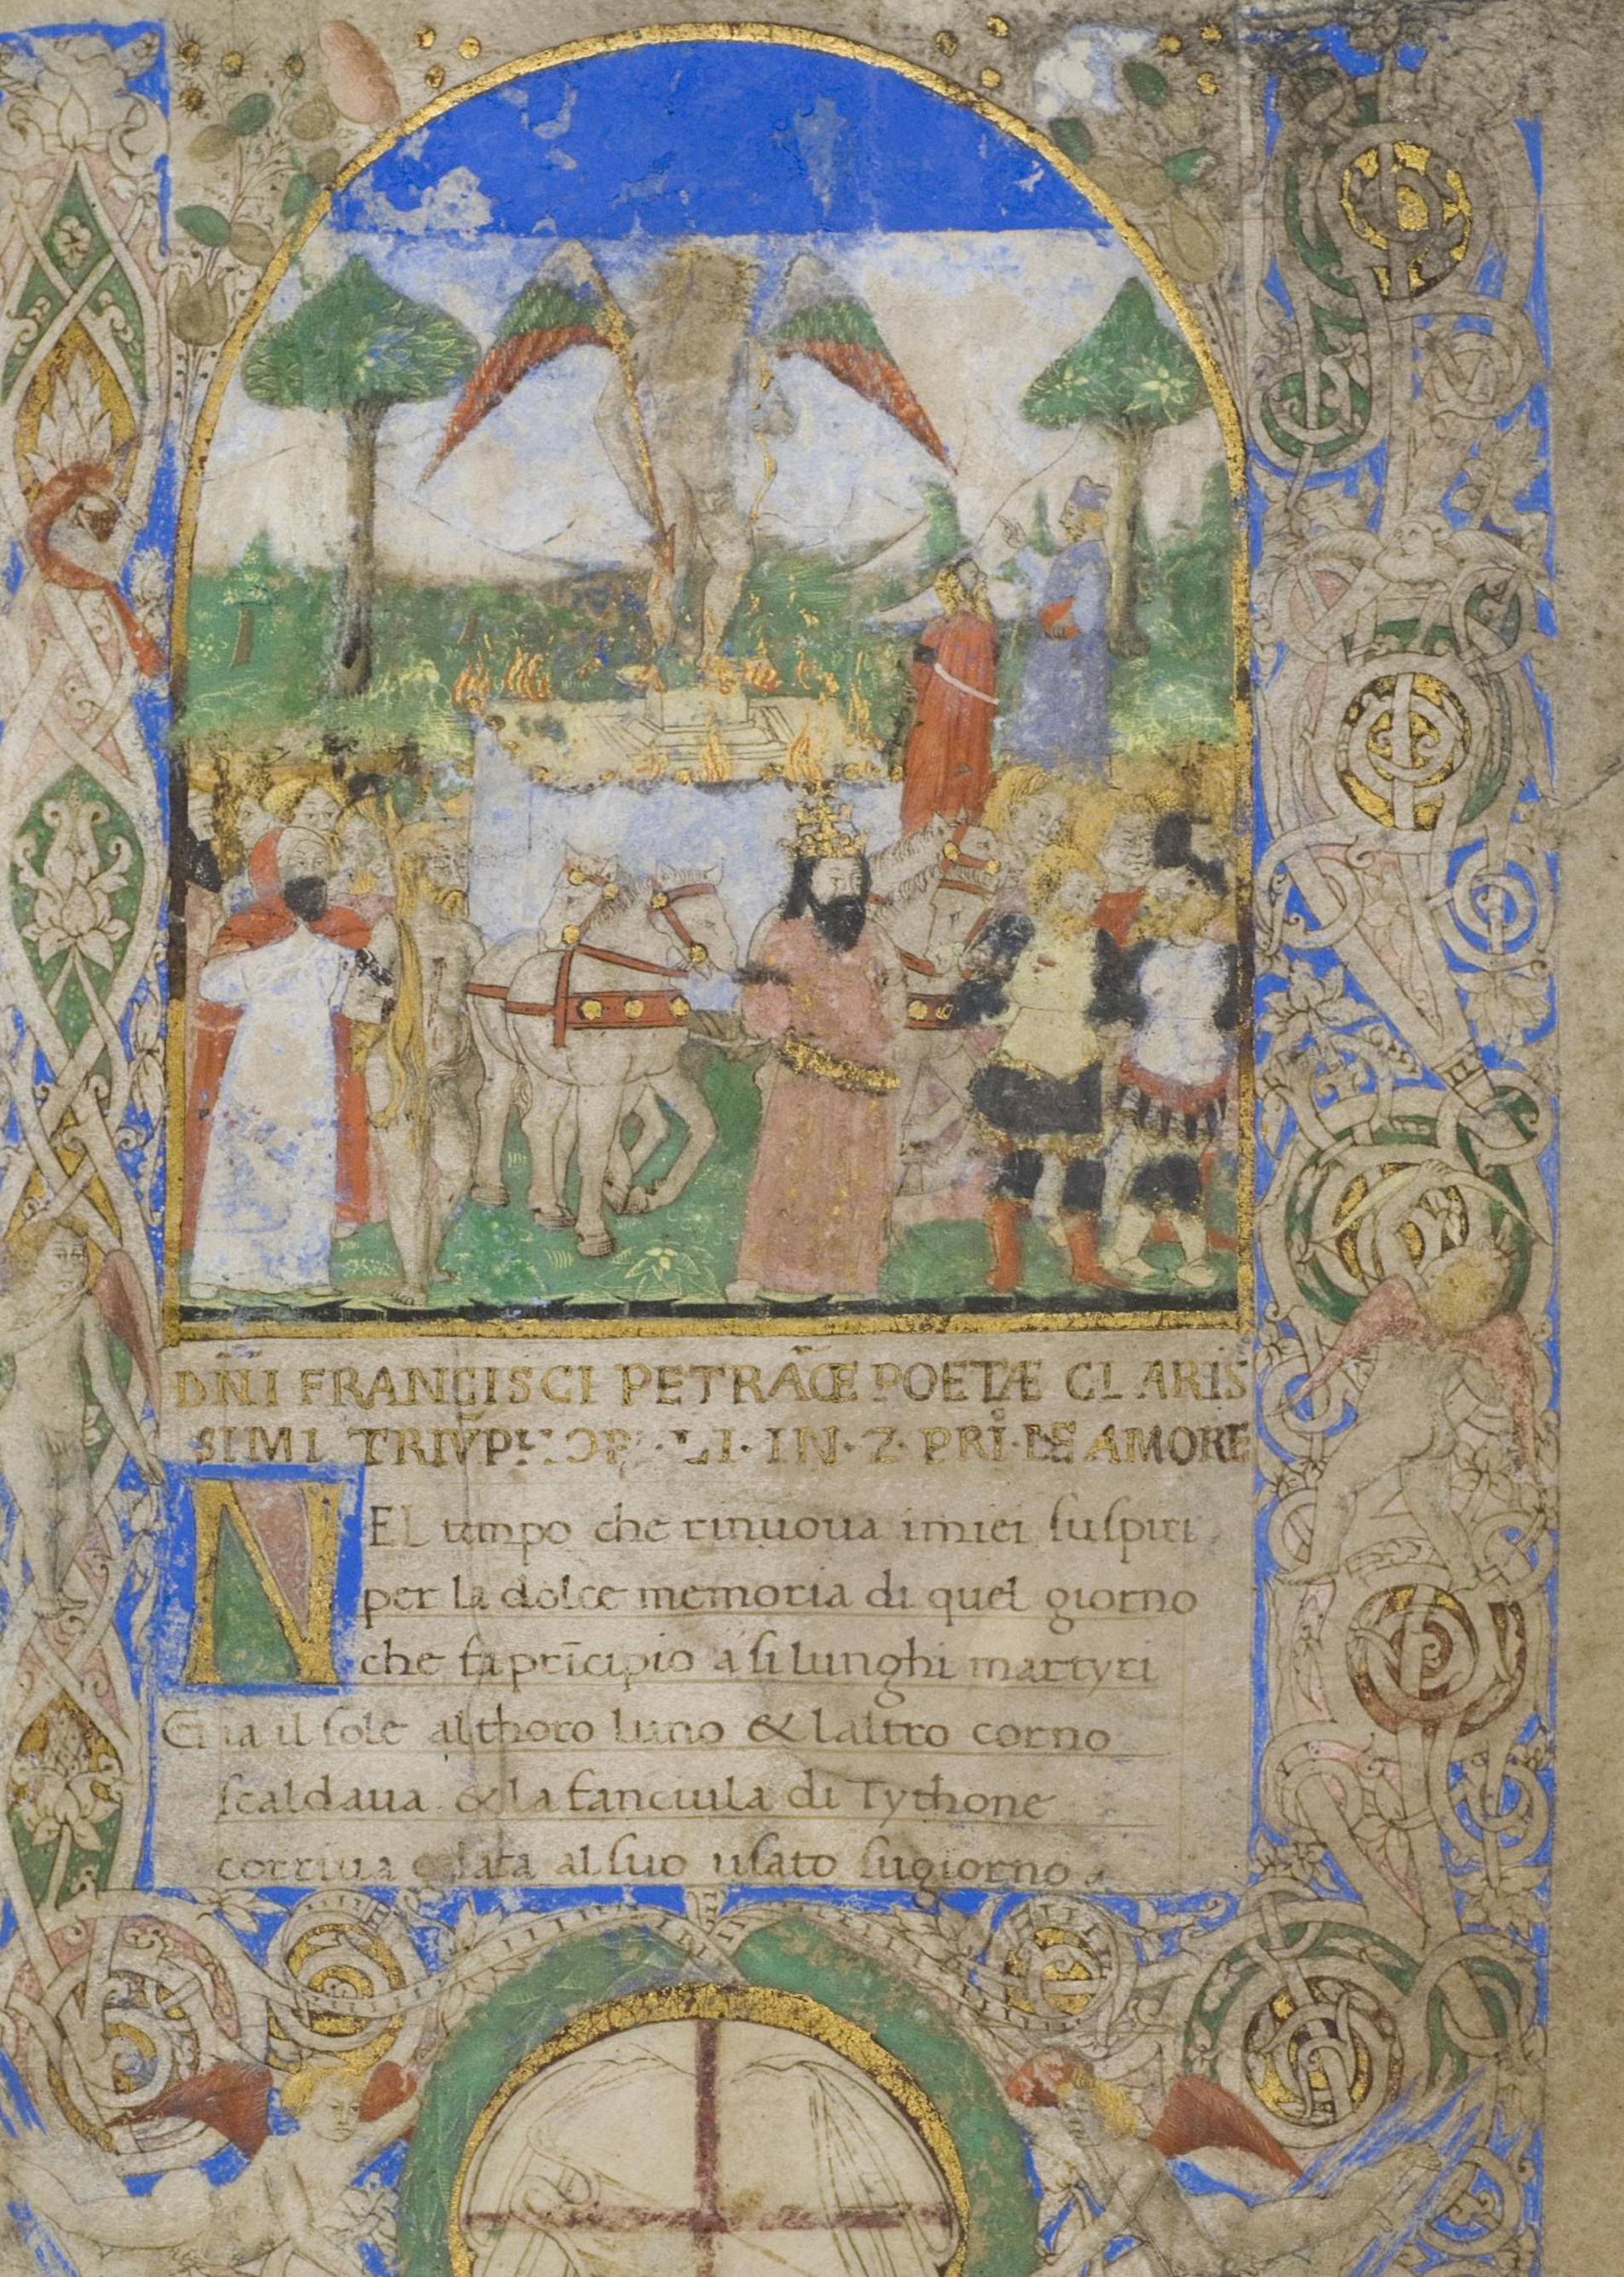 DN̄I FRANCISCI PETRĀCÆ POETÆ CLARIS
SIMI LI · IN · Z · PRI · DE AMORE
NEL tempo che rinuoua imiei suspiri
per la dolce memoria di quel giorno
che fa prīcipio a si lunghi martyri
Gia il sole al thoro luno & laltro corno
scaldaua & la fanciula di Tythone
corriua al suo usato sugiorno